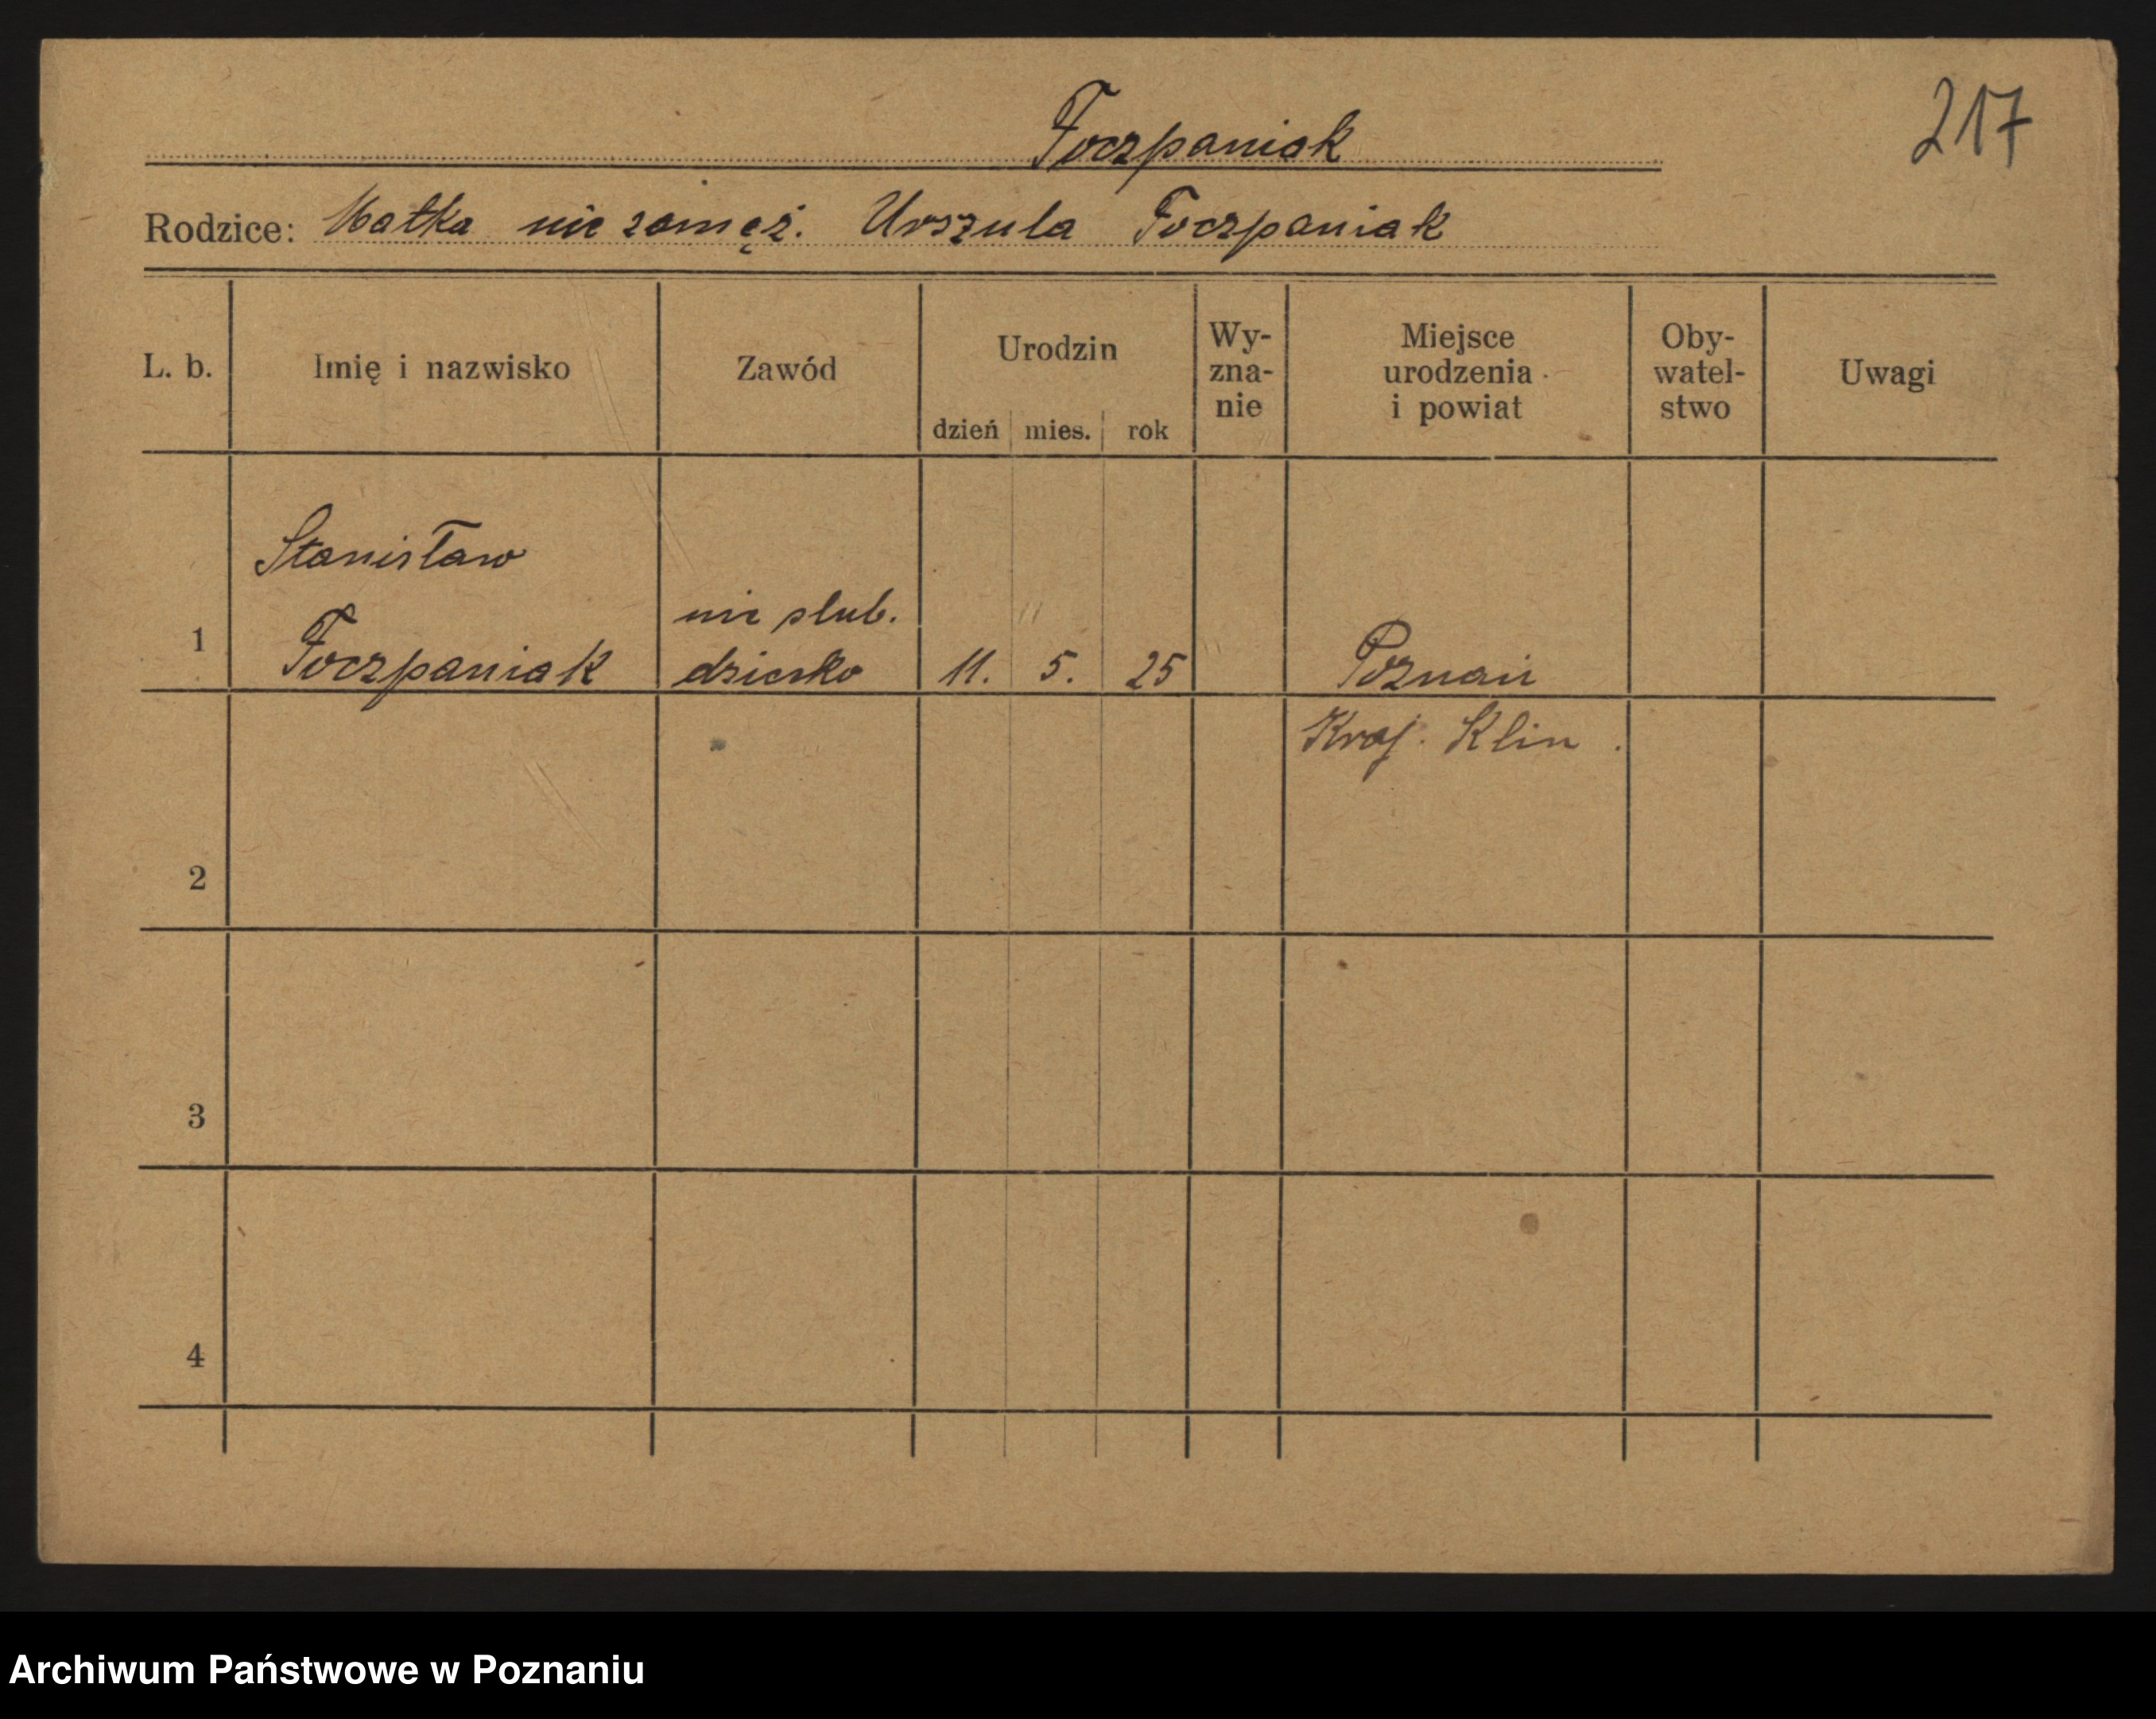 Foczpaniak
217
Rodzice: Matka nie zamęż. Urszula Foczpaniak
L. b.
Imię i nazwisko
Zawód
Urodzin
dzień mies. rok
Wy-
zna-
nie
Miejsce
urodzenia
i powiat
Oby-
watel-
stwo
Uwagi
1
Stanisław
Foczpaniak
nie slub.
dziecko
11. 5. 25
Poznań
Kraj. Klin.
2
3
4
Archiwum Państwowe w Poznaniu